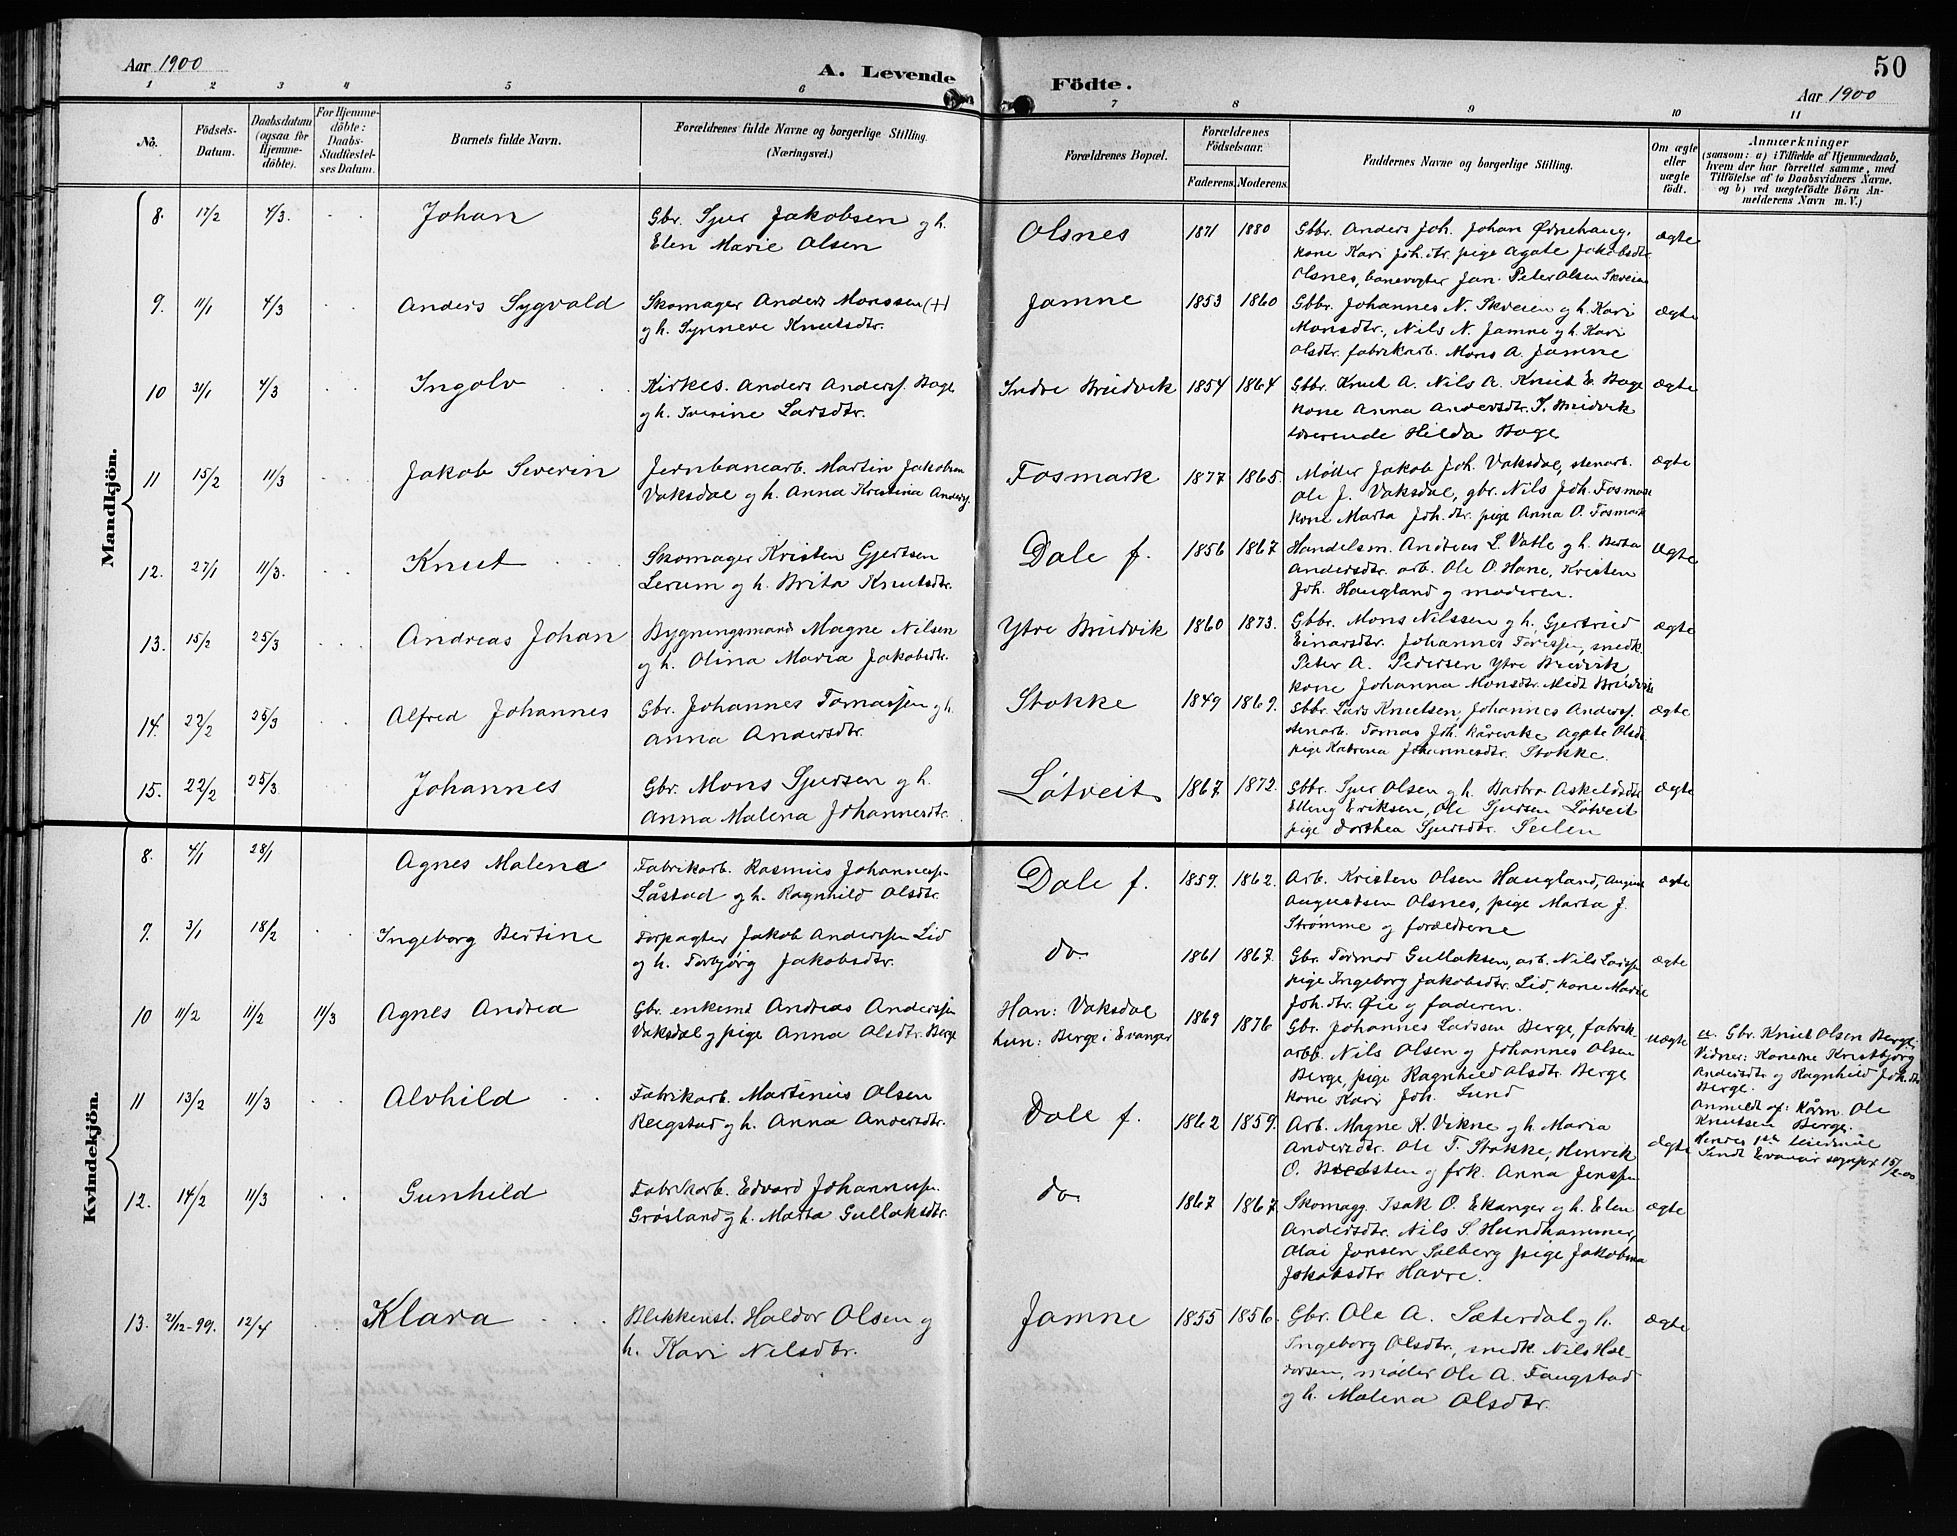 50
Aar 1900
A. Levende Födte.
Aar 1900
1 2 3 4 5 6 7 8 9 10 11
No.
Födsels-
Datum.
Daabsdatum
(ogsaa for
Hjemme-
döbte).
For Hjemme-
döbte:
Daabs-
Stadfæstel-
ses Datum.
Barnets fulde Navn.
Forældrenes fulde Navne og borgerlige Stilling.
(Næringsvei.)
Forældrenes Bopæl.
Forældrenes
Födselsaar.
Faderens. Moderens.
Faddernes Navne og borgerlige Stilling.
Om ægte
eller
uægte
födt.
Anmærkninger
(saasom: a) i Tilfælde af Hjemmedaab,
hvem der har forrettet samme, med
Tilföielse af to Daabsvidners Navne,
og b) ved uægtefödte Börn An-
melderens Navn m. V.)
Mandkjön.
8. 17/2 4/3. Johan
Gbr. Sjur Jakobsen g h.
Elen Marie Olsen
Olsnes 1871 1880
Gbbr. Anders Joh. Johan Ødnehaug,
kone Kari Joh.dtr. pige Agate Jakobsdtr.
Olsnes, banevogter Jan. Peter Olsen Skreien
ægte
9. 11/1 4/3 Anders Sygvald
Skomager Anders Monssen (+)
g h. Synneve Knutsdtr.
Jamne 1853 1860
Gbbr. Johannes N. Skreien g h. Kari
Monsdtr., Nils N. Jamne g h. Kari
Olsdtr. fabrikarb. Mons A. Jamne
ægte
10 31/1 4/3 Ingolv
Kirkes. Anders Anderss. Boge
g h. Iverine Larsdtr.
Indre Bruvik 1854 1864
Gbbr. Knut A. Nils A. Knut E. Boge
kone Anna Andersdtr. I. Bruvik
lærerinde Hilda Boge
ægte
11 15/2 11/3 Jakob Severin
Jernbanearb. Martin Jakobsen
Vaksdal g h. Anna Kristina Anders.
Fosmark 1877 1865.
Møller Jakob Joh. Vaksdal, stenarb.
Ole J. Vaksdal, gbr. Nils Joh. Fosmark
kone Marta Joh.dtr. pige Anna O. Fosmark
ægte
12. 27/1 11/3. Knut
Skomager Kristen Gjertsen
Lerum g h. Brita Knutsdtr.
Dale f. 1856 1867
Handelsm. Andreas L. Vatle g h. Berta
Andersdtr. arb. Ole O. Hane, Kristen
Joh. Haugland g moderen.
ægte
13. 15/2 25/3 Andreas Johan
Bygningsmand Magne Nilsen
g h. Olina Maria Jakobsdtr.
Ytre Bruvik 1860 1873.
Gbbr. Mons Nilssen g h. Gjertrud
Einarsdtr. Johannes Toressen, snedk.
Peter A. Pedersen Ytre Bruvik,
kone Johanna Monsdtr. Medt Bruvik
ægte
14. 22/2 25/3 Alfred Johannes
Gbr. Johannes Tomassen g h.
Anna Andersdtr.
Stokke 1849 1869.
Gbbr. Lars Knutsen, Johannes Anderss.
stenarb. Tomas Joh. Kårevike Agate Olsdtr.
pige Katrina Johannesdtr. Stokke.
ægte
15. 22/2 25/3 Johannes
Gbr. Mons Sjursen g h.
Anna Malena Johannesdtr.
Løtveit 1867 1872.
Gbbr. Sjur Olsen g h. Barbra Askeldsdtr
Elling Eriksen, Ole Sjursen Løtveit
pige Dorthea Sjursdtr. Seilen
ægte
Kvindekjön.
8. 4/1 28/1 Agnes Malene
Fabrikarb. Rasmus Johanness.
Låstad g h. Ragnhild Olsdtr.
Dale f. 1859. 1862.
Arb. Kristen Olsen Haugland, August
Augustsen Olsnes, pige Marta J.
Strømme g forældrene
ægte
9. 3/1 18/2 Ingeborg Bertine
Forpagter Jakob Anderssen Lid
g h. Torbjørg Jakobsdtr.
do 1861 1867.
Gbr. Tormod Gullaksen, arb. Nils Larss.
pige Ingeborg Jakobsdtr. Lid, kone Marie
Joh.dtr. Øie g faderen.
ægte
10 11/2 11/2 11/3 Agnes Andrea
Gbr. enkemd Andreas Anderssen
Vaksdal g pige Anna Olsdtr. Berge
Han: Vaksdal
hun: Berge i Evanger
1869 1876
Gbr. Johannes Larssen Berge, fabrik-
arbb. Nils Olsen g Johannes Olsen
Berge, pige Ragnhild Olsdtr. Berge
kone Kari Joh. Lund
uægte
a. Gbr. Knut Olsen Berge.
Vidner: Konerne Kristbjørg
Andersdtr g Ragnhild Joh.dtr
Berge.
Anmeldt af: Kårm. Ole
Knutsen Berge.
Hendes 1ste leiermål
Sendt Evanger sognepr. 15/2-00
11 13/2 11/3 Alvhild
Fabrikarb. Martinus Olsen
Reigstad g h. Anna Andersdtr.
Dale f. 1862 1859.
Arb. Magne K. Vikne g h. Maria
Andersdtr. Ole T. Stokke, Henrik
O. Bredsten g frk. Anna Jenssen
ægte
12. 14/2 11/3 Gunhild
Fabrikarb. Edvard Johanness.
Grøsland g h. Marta Gullaksdtr.
do 1867 1867.
Skomagg. Isak O. Ekanger g h. Elen
Andersdtr. Nils S. Hundhammer,
Olai Jonsen Solberg pige Jakobina
Jakobsdtr. Havre.
ægte
13. 21/12-99. 12/4 Klara
Blikkensl. Haldor Olsen g
h. Kari Nilsdtr.
Jamne 1855 1856.
Gbr. Ole A. Sæterdal g h.
Ingeborg Olsdtr., snedk. Nils Hal-
dorsen, møller Ole A. Faugstad
g h. Malena Olsdtr.
ægte